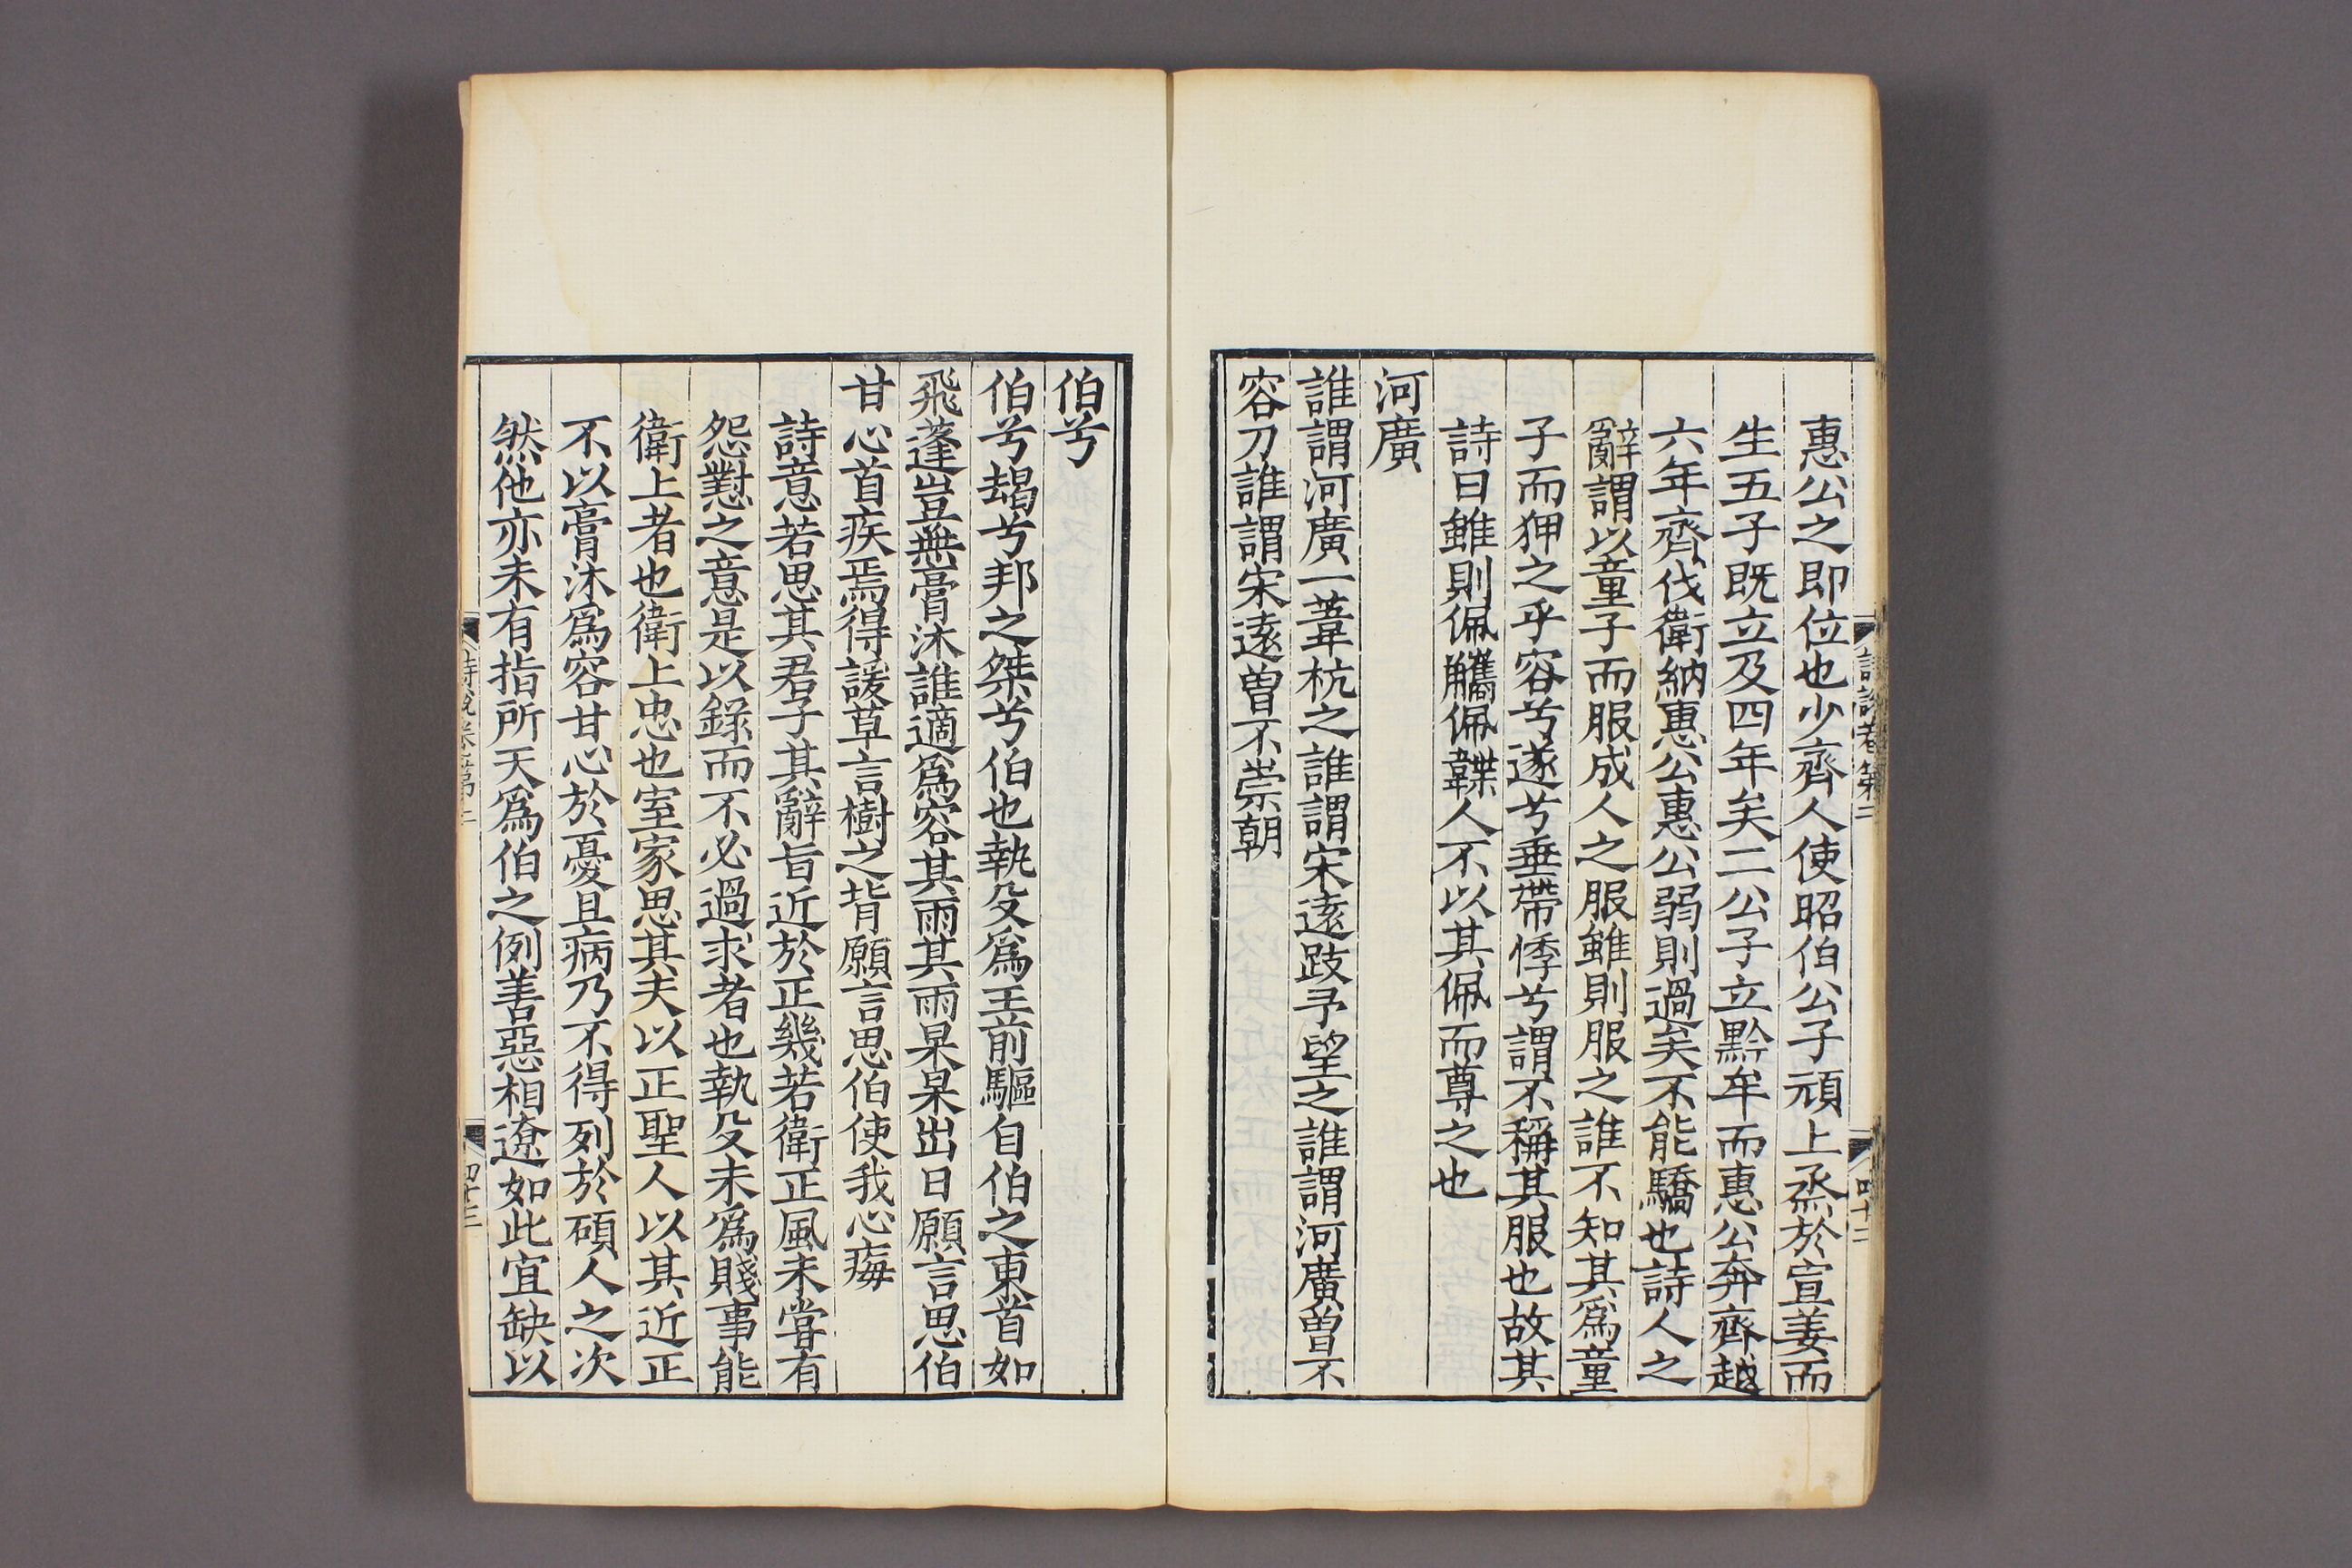 惠公之即位也少齊人使昭伯公子頑上烝於宣姜而
生五子既立及四年矣二公子立黔牟而惠公奔齊越
六年齊伐衛納惠公惠公弱則過矣不能驕也詩人之
辭謂以童子而服成人之服雖則服之誰不知其爲童
子而狎之乎容兮遂兮垂帶悸兮謂不稱其服也故其
詩曰雖則佩觿佩韘人不以其佩而尊之也
河廣
誰謂河廣一葦杭之誰謂宋遠跂予望之誰謂河廣曽不
容刀誰謂宋遠曽不崇朝
伯兮
伯兮朅兮邦之桀兮伯也執殳爲王前驅自伯之東首如
飛蓬豈無膏沐誰適爲容其雨其雨杲杲出日願言思伯
甘心首疾焉得諼草言樹之背願言思伯使我心痗
詩意若思其君子其辭旨近於正幾若衛正風未嘗有
怨懟之意是以錄而不必過求者也執殳未爲賤事能
衛上者也衛上忠也室家思其夫以正聖人以其近正
不以膏沐爲容甘心於憂且病乃不得列於碩人之次
然他亦未有指所天爲伯之例善惡相遼如此宜缺以
詩說卷第二
四十二
詩說卷第二
四十三